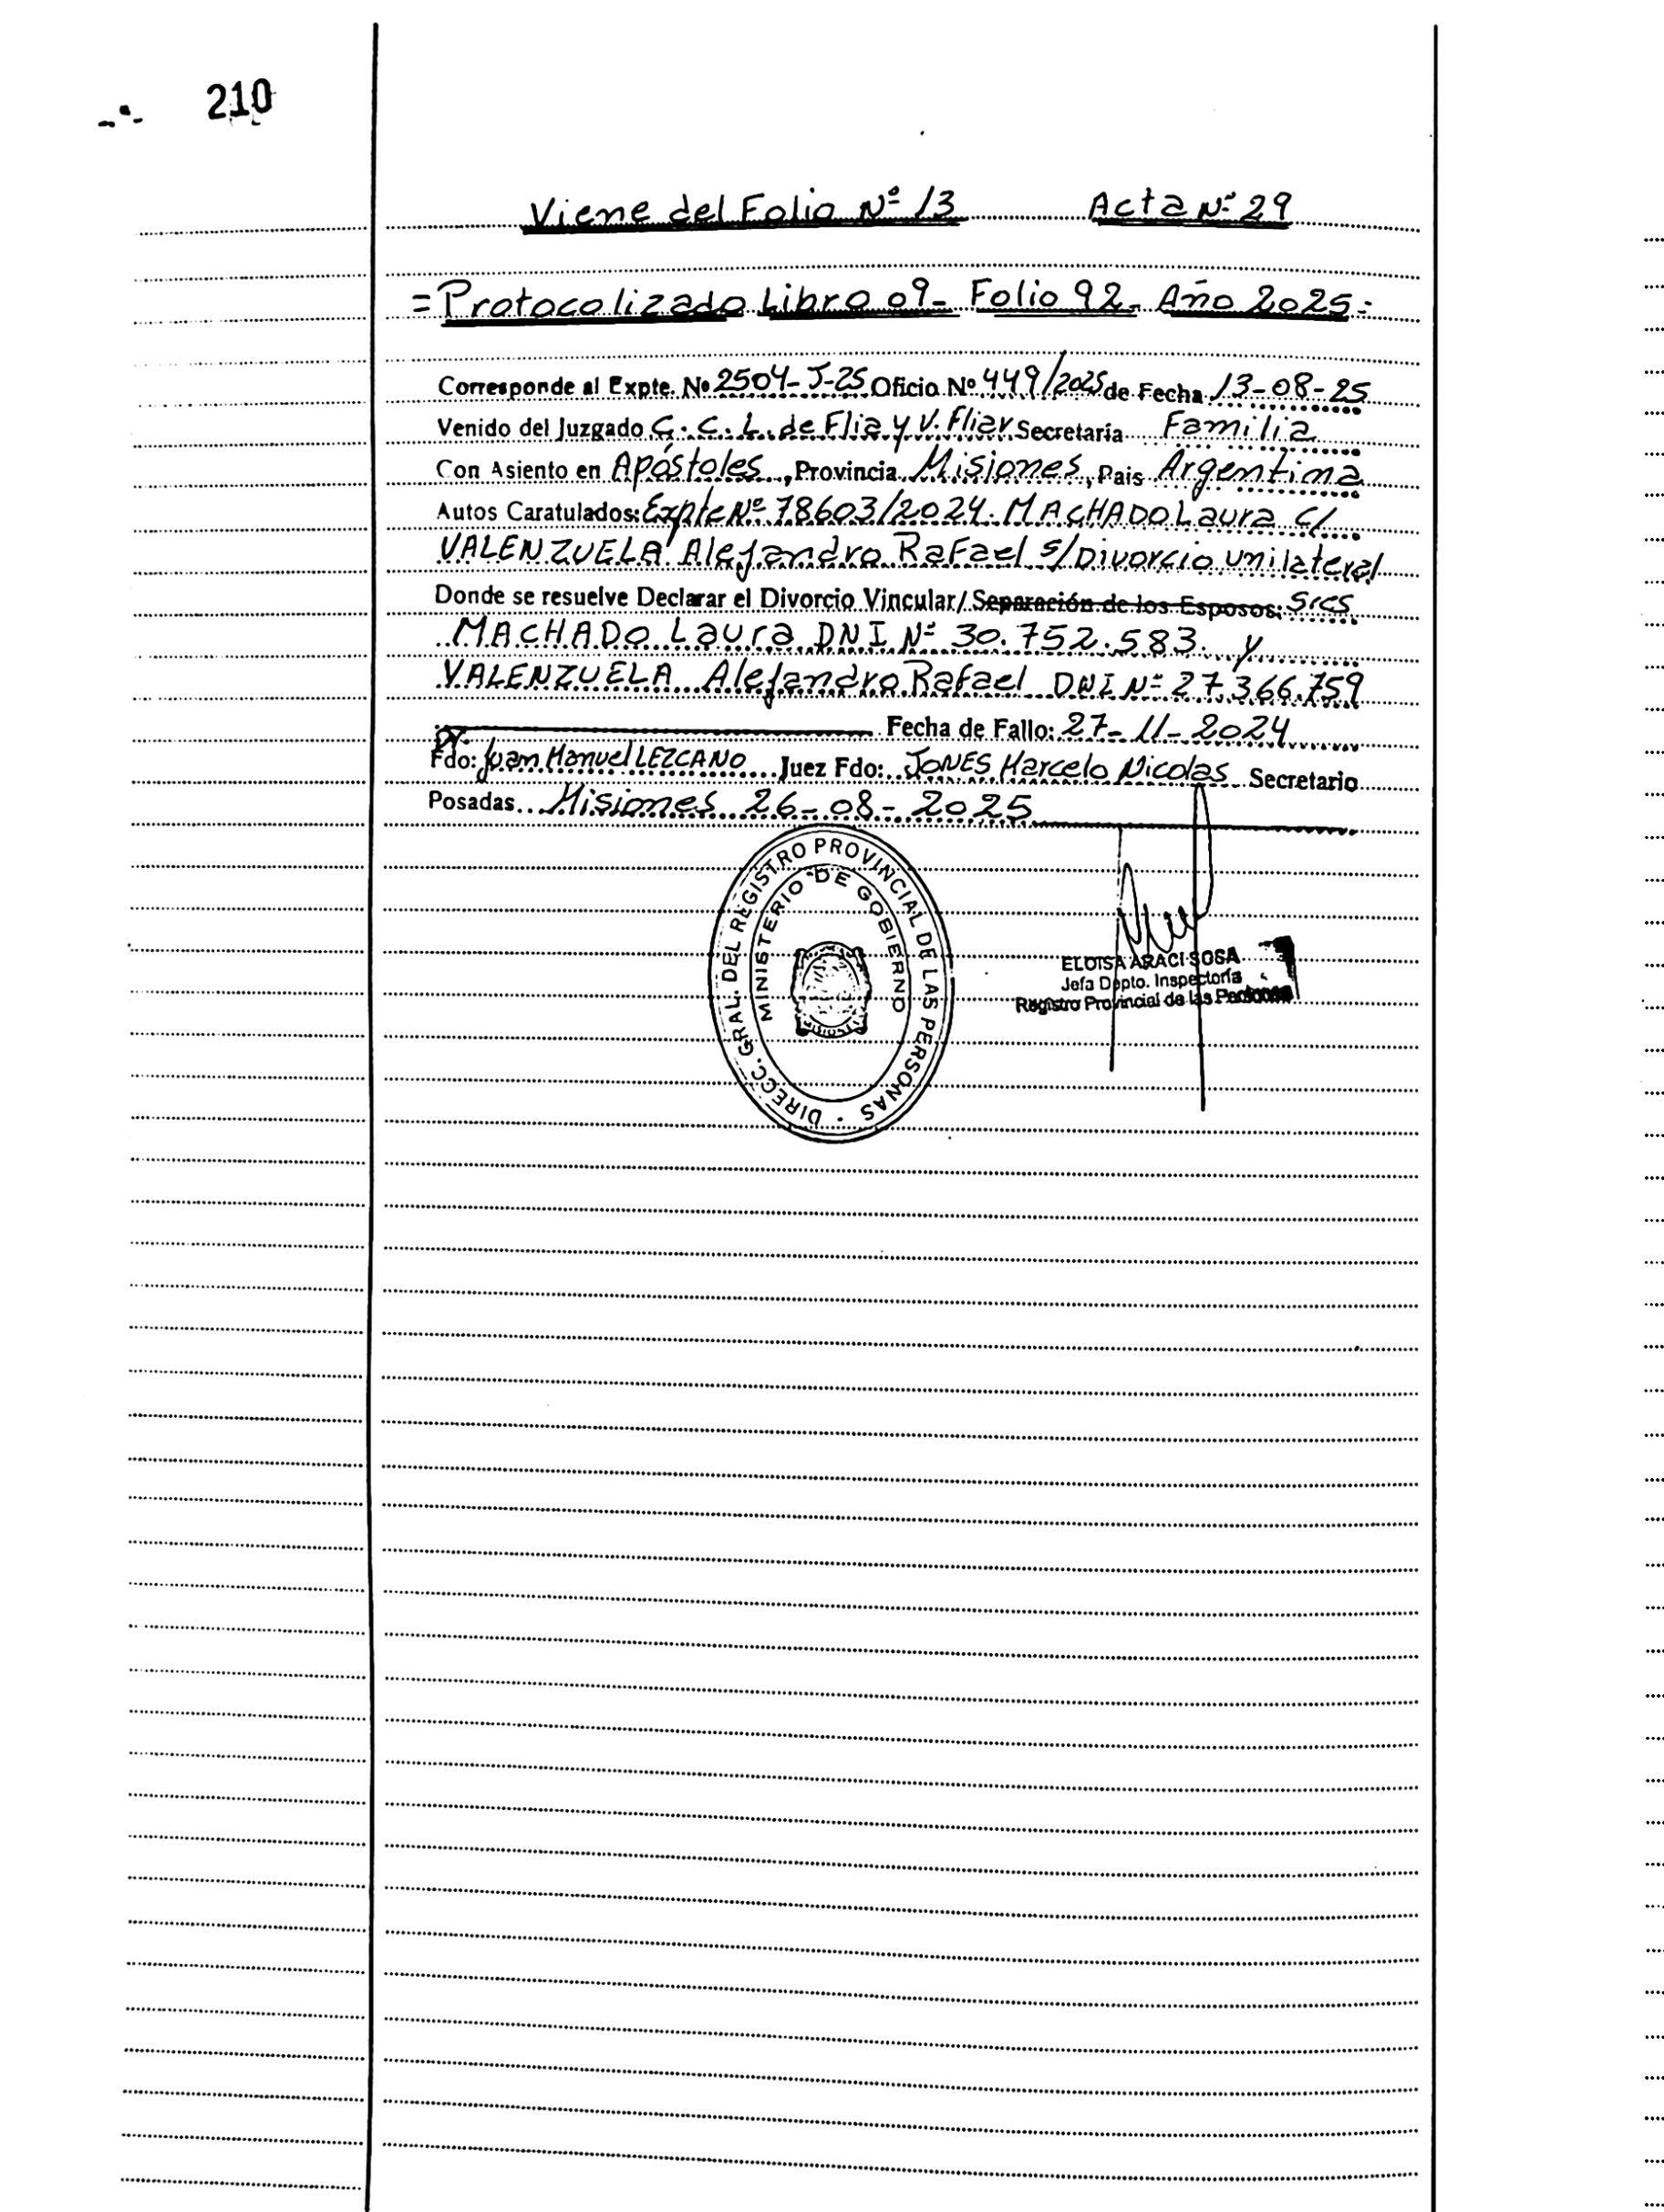 210
Viene del Folio Nº 13 Acta Nº 29
= Protocolizado Libro 09- Folio 92- Año 2025=
Corresponde al Expte. Nº 2504-J-25 Oficio Nº 449/2025 de Fecha 13-08-25
Venido del Juzgado C. C. L. de Flia y V. Fliar Secretaría Familia
Con Asiento en Apóstoles, Provincia Misiones, Pais Argentina
Autos Caratulados: Expte Nº 78603/2024. MACHADO Laura C/
VALENZUELA Alejandro Rafael s/Divorcio unilateral
Donde se resuelve Declarar el Divorcio Vincular/ Separación de los Esposos: Sres
MACHADO Laura DNI Nº 30.752.583. y
VALENZUELA Alejandro Rafael DNI Nº 27.366.759
Fecha de Fallo: 27-11-2024
Fdo: Dr. Juan Manuel LEZCANO Juez Fdo: JONES Marcelo Nicolas Secretario
Posadas... Misiones 26-08-2025
DIRECC. GRAL. DEL REGISTRO PROVINCIAL DE LAS PERSONAS -
MINISTERIO DE GOBIERNO
MISIONES
ELOISA ARACI SOSA
Jefa Dpto. Inspectoría
Registro Provincial de las Personas